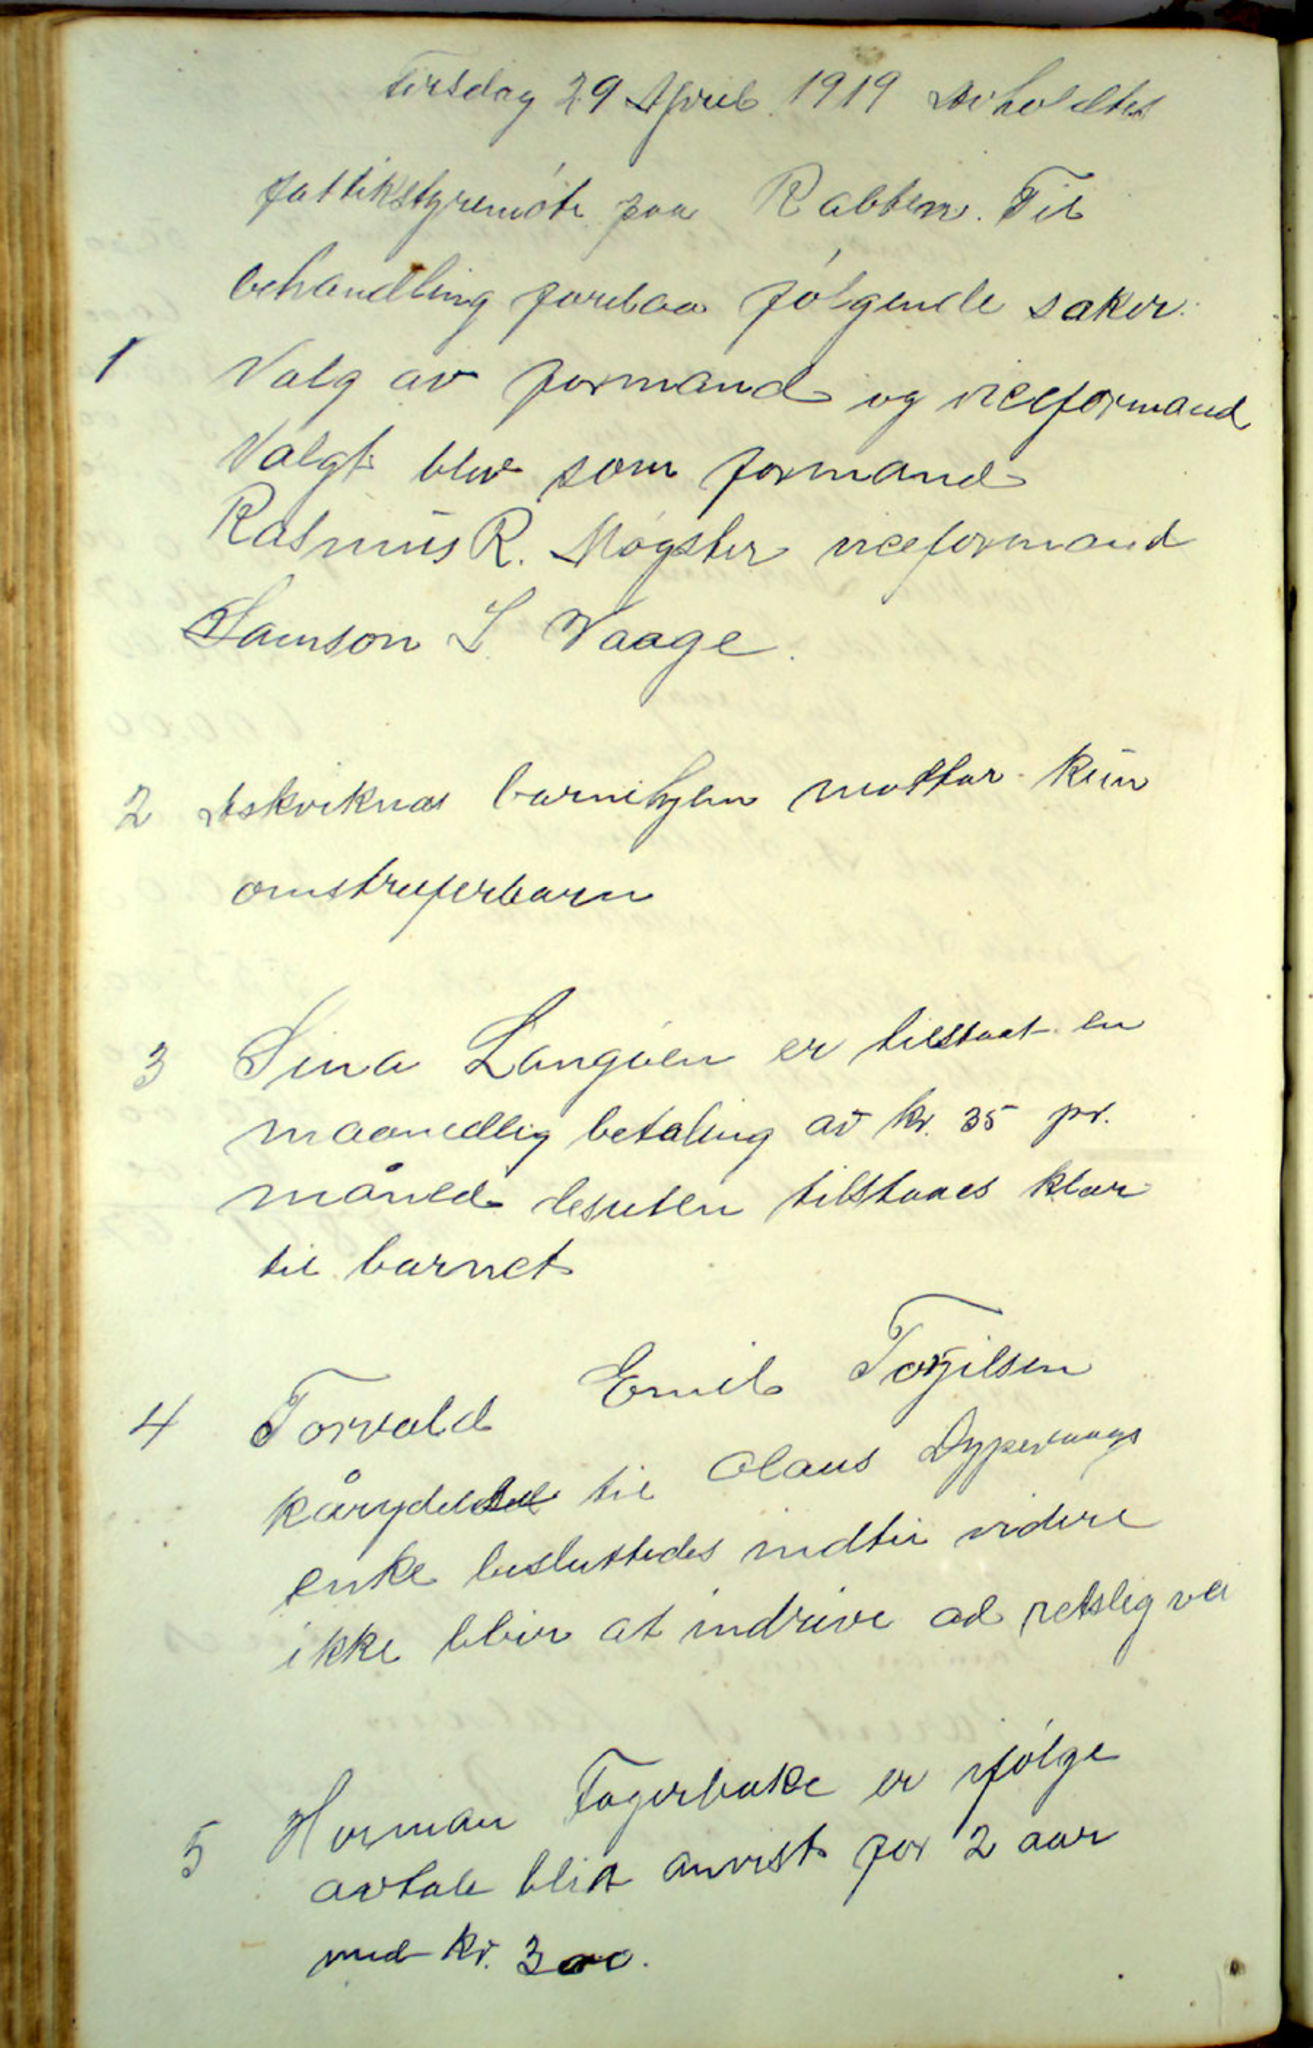 Tirsdag 29 April 1919 Avholdtes
fattikstyremöte paa Rabben. Til
behandling forelaa følgende saker.
1 Valg av formand og viceformand
Valgt blev som formand
Rasmus R. Møgster viceformand
Samson S. Vaage.
2 Askviknes barnehjem mottar kun
omstreiferbarn
3 Sina Langøen er tilstaat en
maanedlig betaling av kr. 35 pr.
måned desuten tilstaaes klær
til barnet
4 Torvald Emil Torgilsen
kårydelse til Olaus Dypevaags
enke besluttedes indtil videre
ikke blir at inddrive ad retslig vei
5 Herman Fagerbakke er ifølge
avtale blit anvist for 2 aar
med kr. 300.